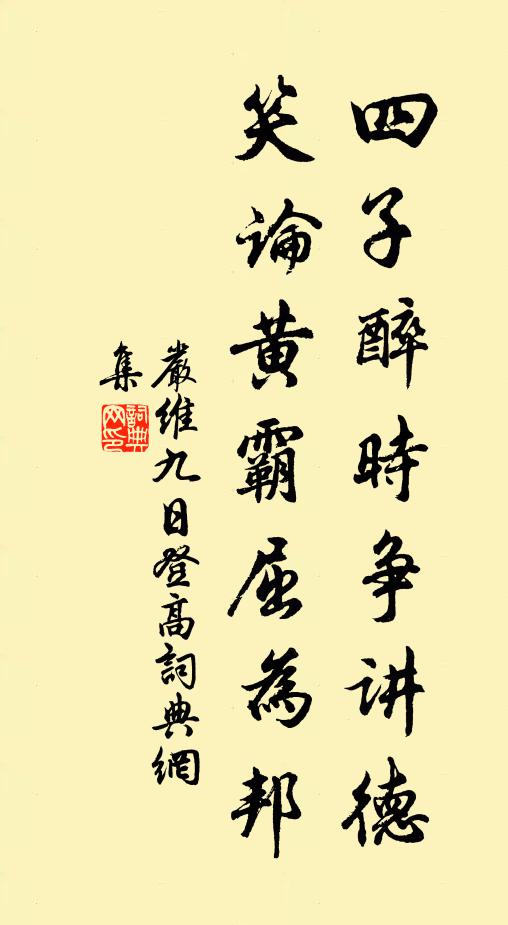 四子醉時争讲德
笑論黄霸屈為邦
嚴維九日登高詞典網
集
詞典网印